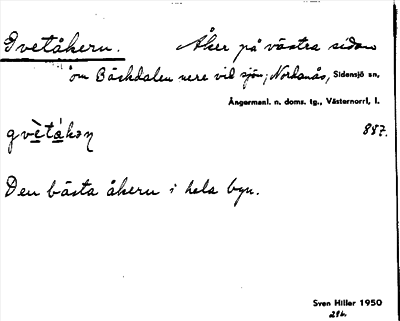 Gvetåkern. Åker på västra sidan
om Bäckdalen nere vid sjön; Nordanås, Sidensjö sn,
Ångermanl. n. doms. tg., Västernorrl. l.
gvètákɘn 887.
Den bästa åkern i hela byn.
Sven Hiller 1950